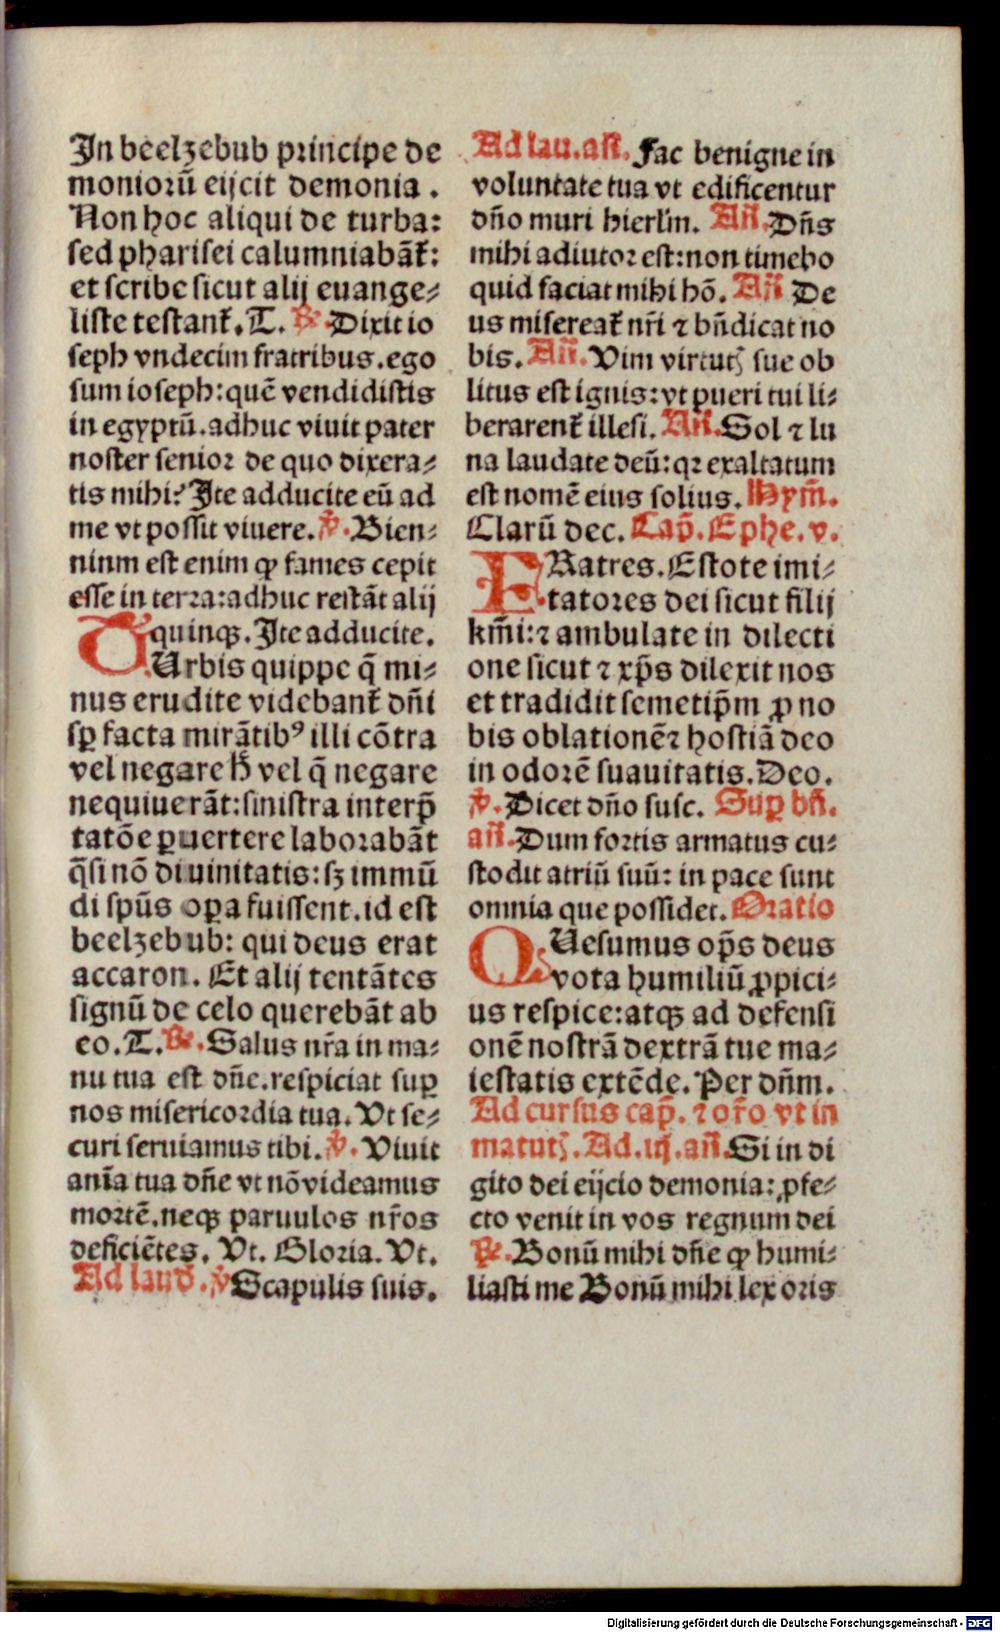 In beelzebub principe de
moniorū eijcit demonia.
Non hoc aliqui de turba:
sed pharisei calumniabāt̄:
et scribe sicut alij euange⸗
liste testant̄. T. ℟. Dixit io
seph vndecim fratribus. ego
sum ioseph: quē vendidistis
in egyptū. adhuc viuit pater
noster senior de quo dixera⸗
tis mihi? Ite adducite eū ad
me vt possit viuere. ℣. Bien⸗
ninm est enim ꝙ fames cepit
esse in terra: adhuc restāt alij
quinqꝫ. Ite adducite.
TUrbis quippe q̄ mi⸗
nus erudite videbant̄ dn̄i
sꝑ facta mirātibꝰ illi cōtra
vel negare h̄ vel q̄ negare
nequiuerāt: sinistra interp̄
tatōe ꝑuertere laborabāt
q̄si nō diuinitatis: sꝫ immū
di spūs oꝑa fuissent. id est
beelzebub: qui deus erat
accaron. Et alij tentātes
signū de celo querebāt ab
eo. T. ℟. Salus nr̄a in ma⸗
nu tua est dn̄e. respiciat suꝑ
nos misericordia tua. Vt se⸗
curi seruiamus tibi. ℣. Viuit
anīa tua dn̄e vt nō videamus
mortē. neqꝫ paruulos nr̄os
deficiētes. Vt. Gloria. Vt.
Ad laud̄. ℣ Scapulis suis.
Ad lau. an̄. Fac benigne in
voluntate tua vt edificentur
dn̄o muri hierl̄m. An̄. Dn̄s
mihi adiutor est: non timebo
quid faciat mihi hō. An̄ De
us misereat̄ nr̄i ⁊ bn̄dicat no
bis. An̄. Vim virtutꝭ sue ob
litus est ignis: vt pueri tui li⸗
berarent̄ illesi. An̄. Sol ⁊ lu
na laudate deū: qꝛ exaltatum
est nomē eius solius. Hym̄.
Clarū dec. Cap̄. Ephe. v.
FRatres. Estote imi⸗
tatores dei sicut filij
km̄i: ⁊ ambulate in dilecti
one sicut ⁊ xp̄s dilexit nos
et tradidit semetip̄m ꝓ no
bis oblationē ⁊ hostiā deo
in odorē suauitatis. Deo.
℣. Dicet dn̄o susc. Suꝑ bn̄.
an̄. Dum fortis armatus cu⸗
stodit atriū suū: in pace sunt
omnia que possidet. Oratio
QUesumus op̄s deus
vota humiliū ꝓpici⸗
us respice: atqꝫ ad defensi
onē nostrā dextrā tue ma⸗
iestatis extēde. Per dn̄m.
Ad cursus cap̄. ⁊ or̄o vt in
matutꝭ. Ad. iij. an̄. Si in di
gito dei eijcio demonia: ꝓfe⸗
cto venit in vos regnum dei
℟. Bonū mihi dn̄e ꝙ humi⸗
liasti me Bonū mihi lex oris
Digitalisierung gefördert durch die Deutsche Forschungsgemeinschaft - DFG